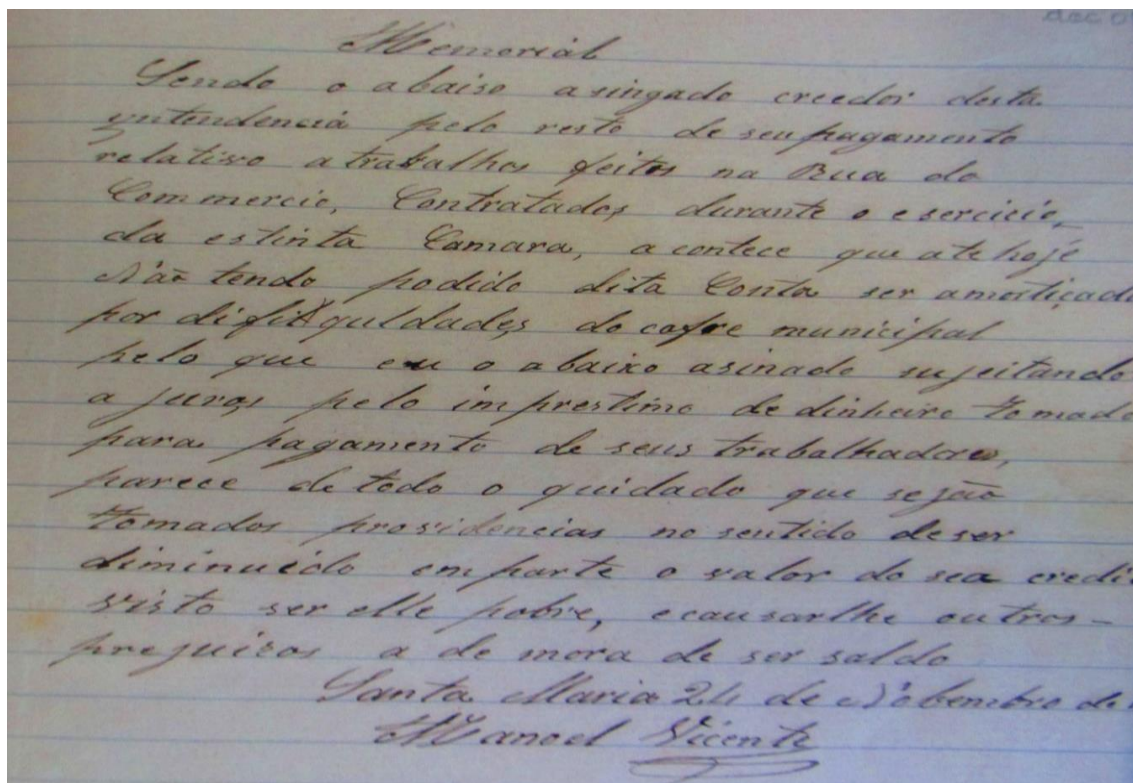 Memorial
Sendo o abaiso asingado creedor desta
yntendencia pelo resto de seu pagamento
relativo a trabalhos feitos na Rua do
Commercio, Contratados durante o esercicio
da estinta Camara, acontece que ate hoje
Não tendo podido dita Conta ser amortiçada
por difitquldades do cofre municipal
pelo que eu o abaixo asinado sujeitando
a juros pelo imprestimo de dinheiro tomado
para pagamento de seus trabalhadores,
parece de todo o quidado que sejão
tomados providencias no sentido de ser
diminuido em parte o valor do sea credi
visto ser elle pobre, e causarlhe outros -
prejuisos a de mora de ser saldo
Santa Maria 24 de Nobembro de
Manoel Vicente